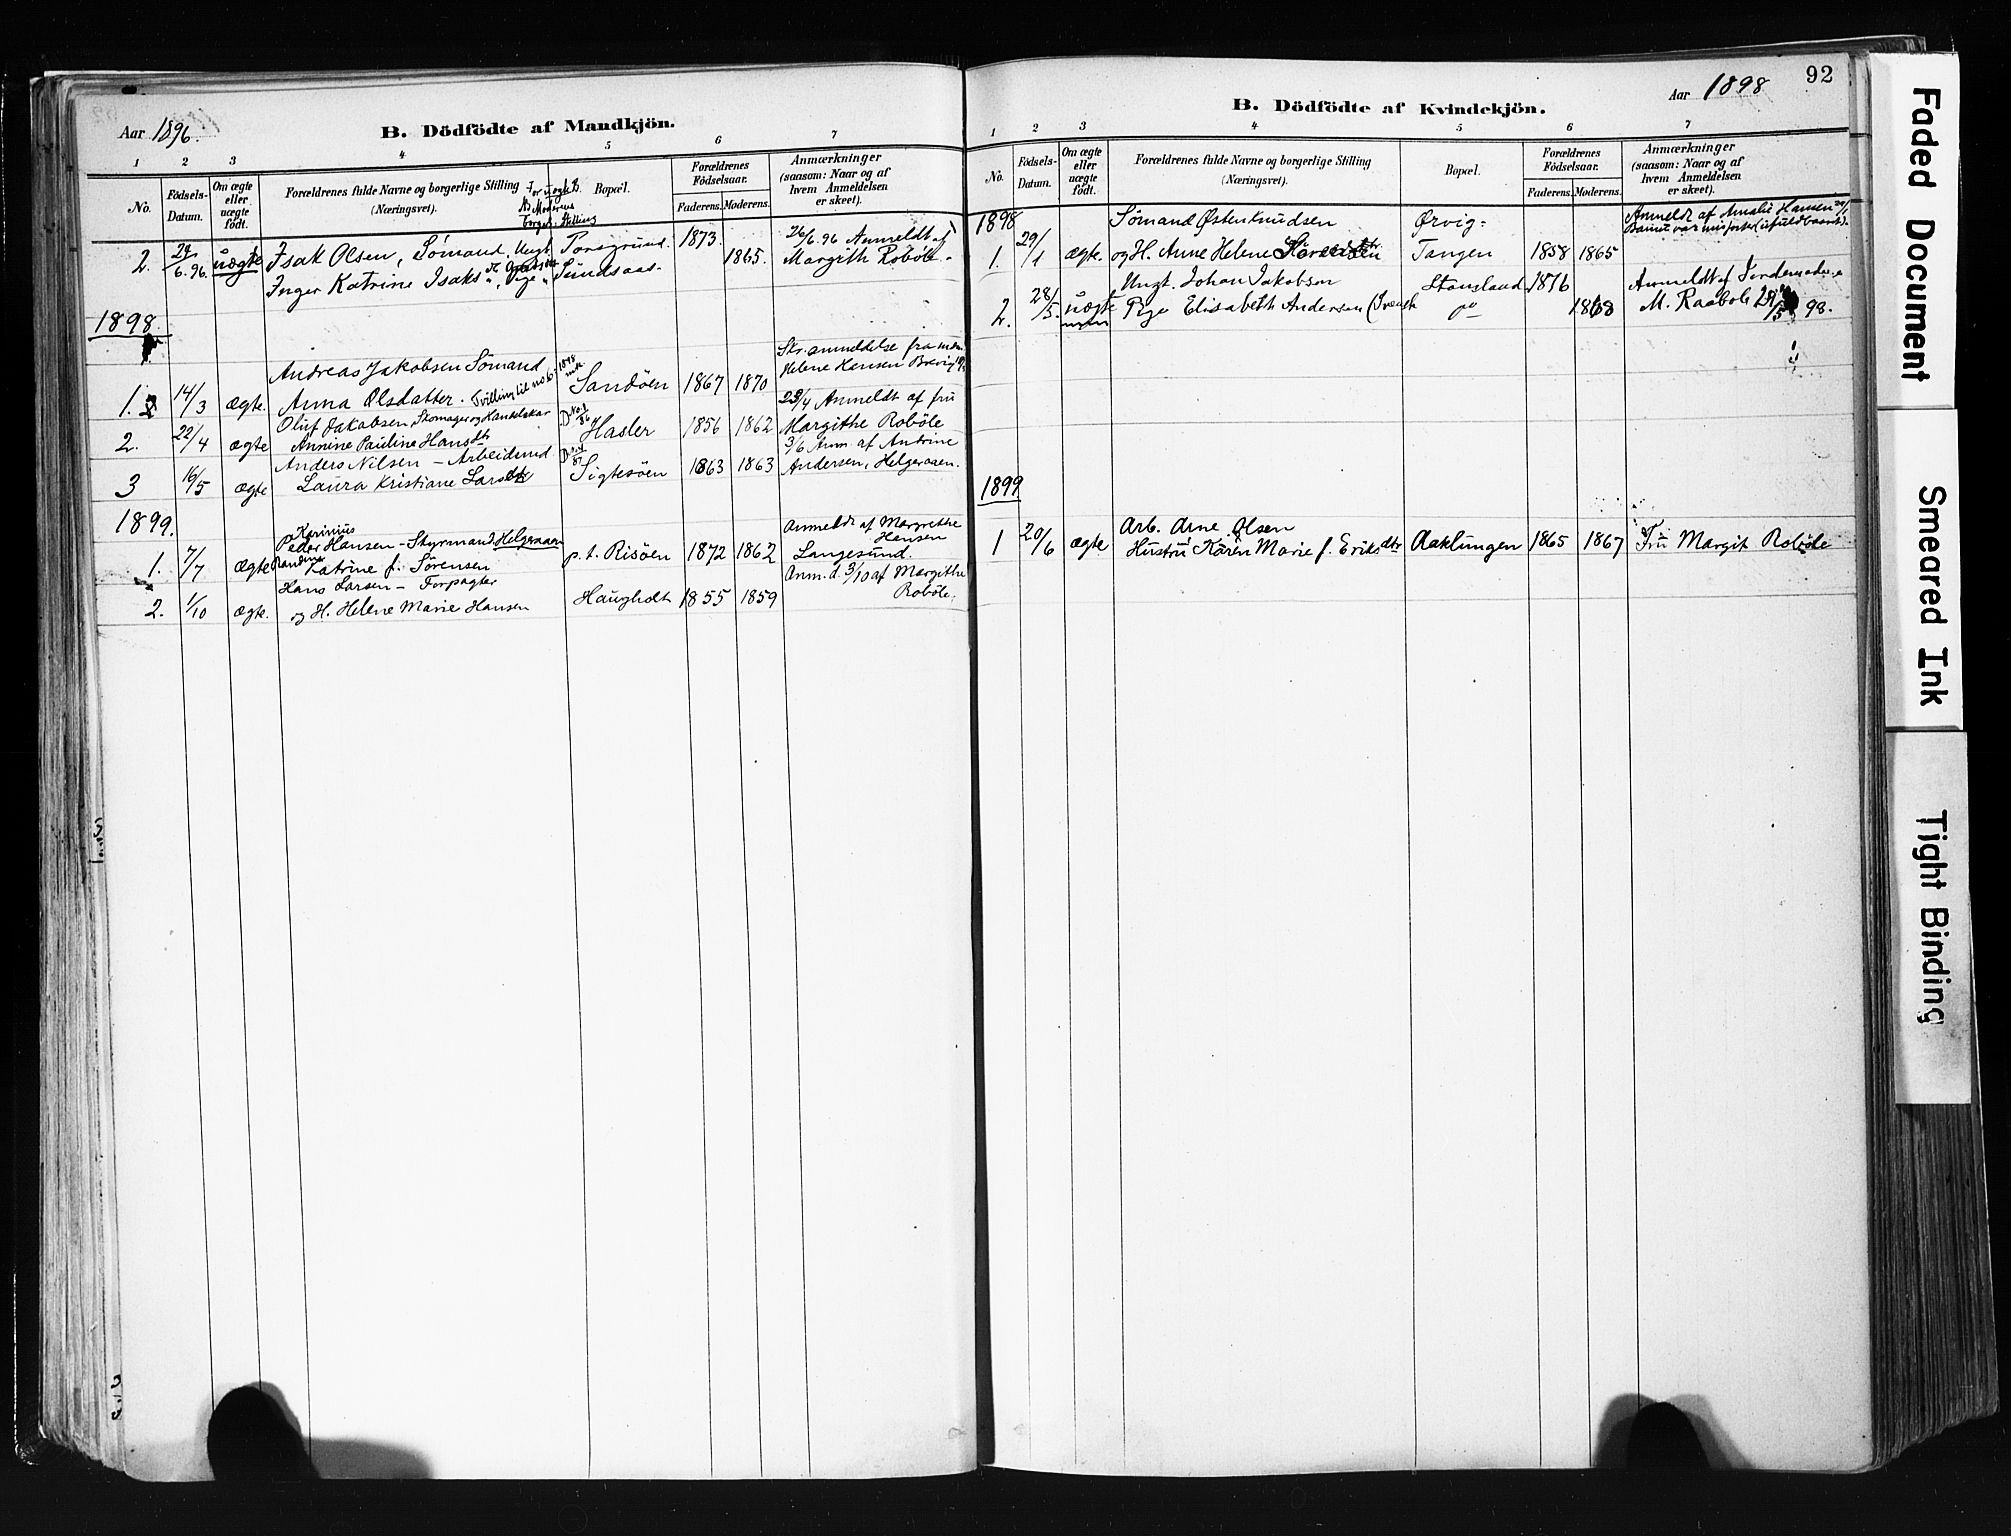 Aar 1896.
B. Dödfödte af Mandkjön.
1 2 3 4 5 6 7
No.
Födsels-Datum.
Om ægte eller uægte födt.
Forældrenes fulde Navne og borgerlige Stilling
(Næringsvei).
Bopæl.
Forældrenes Födselsaar.
Faderens. Moderens.
Anmærkninger
(saasom: Naar og af
hvem Anmeldelsen
er skeet).
2. 6.96. uægte Isak Olsen, Sømand, Ungk. Porsgrund. 1873. 26/6.96 Anmeldt af
Inger Katrine Isaks Pige Sundsaas. 1865. Margith Roböle.
1898.
Andreas Jakobsen Sömand Skr. anmeldelse fra
1. 14/3 ægte. Anna Olsdatter. Tvilling til no 6 Sandöen 1867 1870 Helene Hansen Brevig
Oluf Jakobsen, Skomager og Handelskar 23/4 Anmeldt af fru
2. 22/4 ægte Annine Pauline Hansdtr Hasler 1856 1862 Margithe Roböle
Anders Nilsen - Arbeidsmd 3/6 Anm. af Andrine
3 16/5 ægte Laura Kristiane Larsdtr Sigtesöen 1863 1863 Andersen, Helgeraaen.
1899.
Karinius
Peder Hansen - Styrmand, Helgeraaen Anmeldt af Margrethe Hansen
1. 7/7 ægte Randine Katrine f. Sörensen p.t. Risöen 1872 1862 Langesund.
Hans Larsen - Forpagter Anm. d. 3/10 af Margithe
2. 1/10 ægte. og H. Helene Marie Hansen Haugholt 1855 1859 Roböle.
92
Aar 1898
B. Dödfödte af Kvindekjön.
1 2 3 4 5 6 7
No.
Födsels-Datum.
Om ægte eller uægte födt.
Forældrenes fulde Navne og borgerlige Stilling
(Næringsvei).
Bopæl.
Forældrenes Födselsaar.
Faderens. Moderens.
Anmærkninger
(saasom: Naar og af
hvem Anmeldelsen
er skeet).
1898 Sömand Østen Knudsen Ørvig- Anmeldt af Amalie Hansen
1. 29/1 ægte. og H. Anne Helene Tangen 1858 1865 Barnet var
Ungk. Johan Jakobsen Stamsland 1876 Anmeldt af
2. 28/5. uægte Pige Elisabeth Andersen (Svensk 1868 M. Raaböle 29/5 98.
1899
Arb. Arne Olsen
1 20/6 ægte Hustru Karen Marie f. Eriksdtr Aaklungen 1865 1867 Fru Margit Roböle
Faded Document
Smeared Ink
Tight Binding